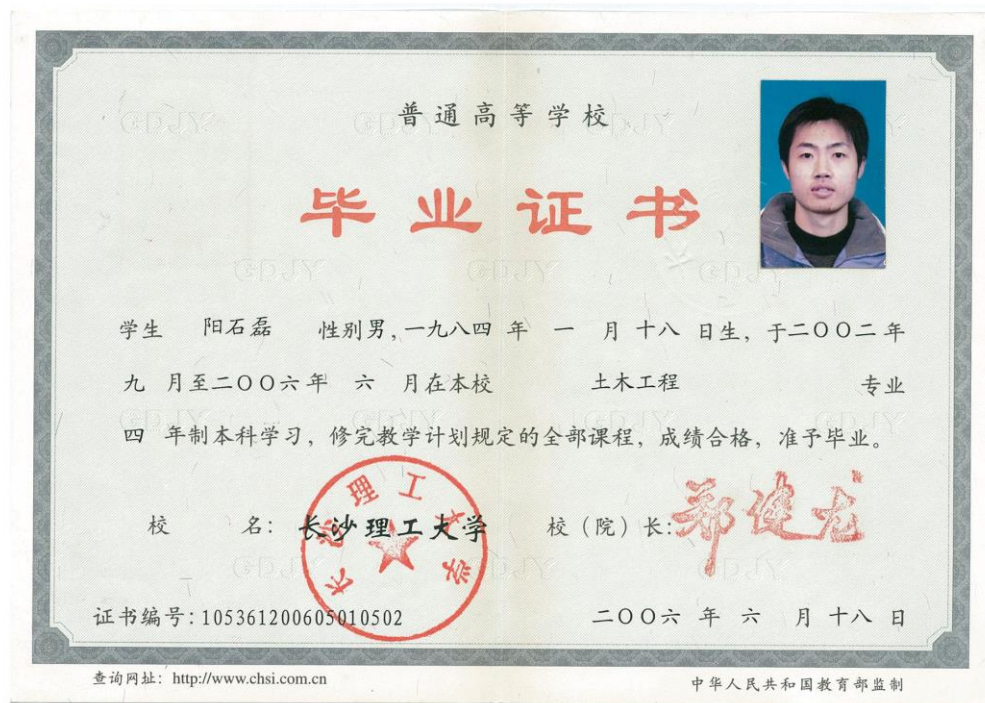 普通高等学校
毕业证书
学生 阳石磊 性别男，一九八四 年 一 月十八 日生，于二〇〇二年
九 月至二〇〇六年 六 月在本校 土木工程 专业
四 年制本科学习，修完教学计划规定的全部课程，成绩合格，准予毕业。
校 名：长沙理工大学 校（院）长：郑健龙
长沙理工大学
证书编号：105361200605010502 二〇〇六 年 六 月 十八 日
查询网址：http://www.chsi.com.cn 中华人民共和国教育部监制
GDJY